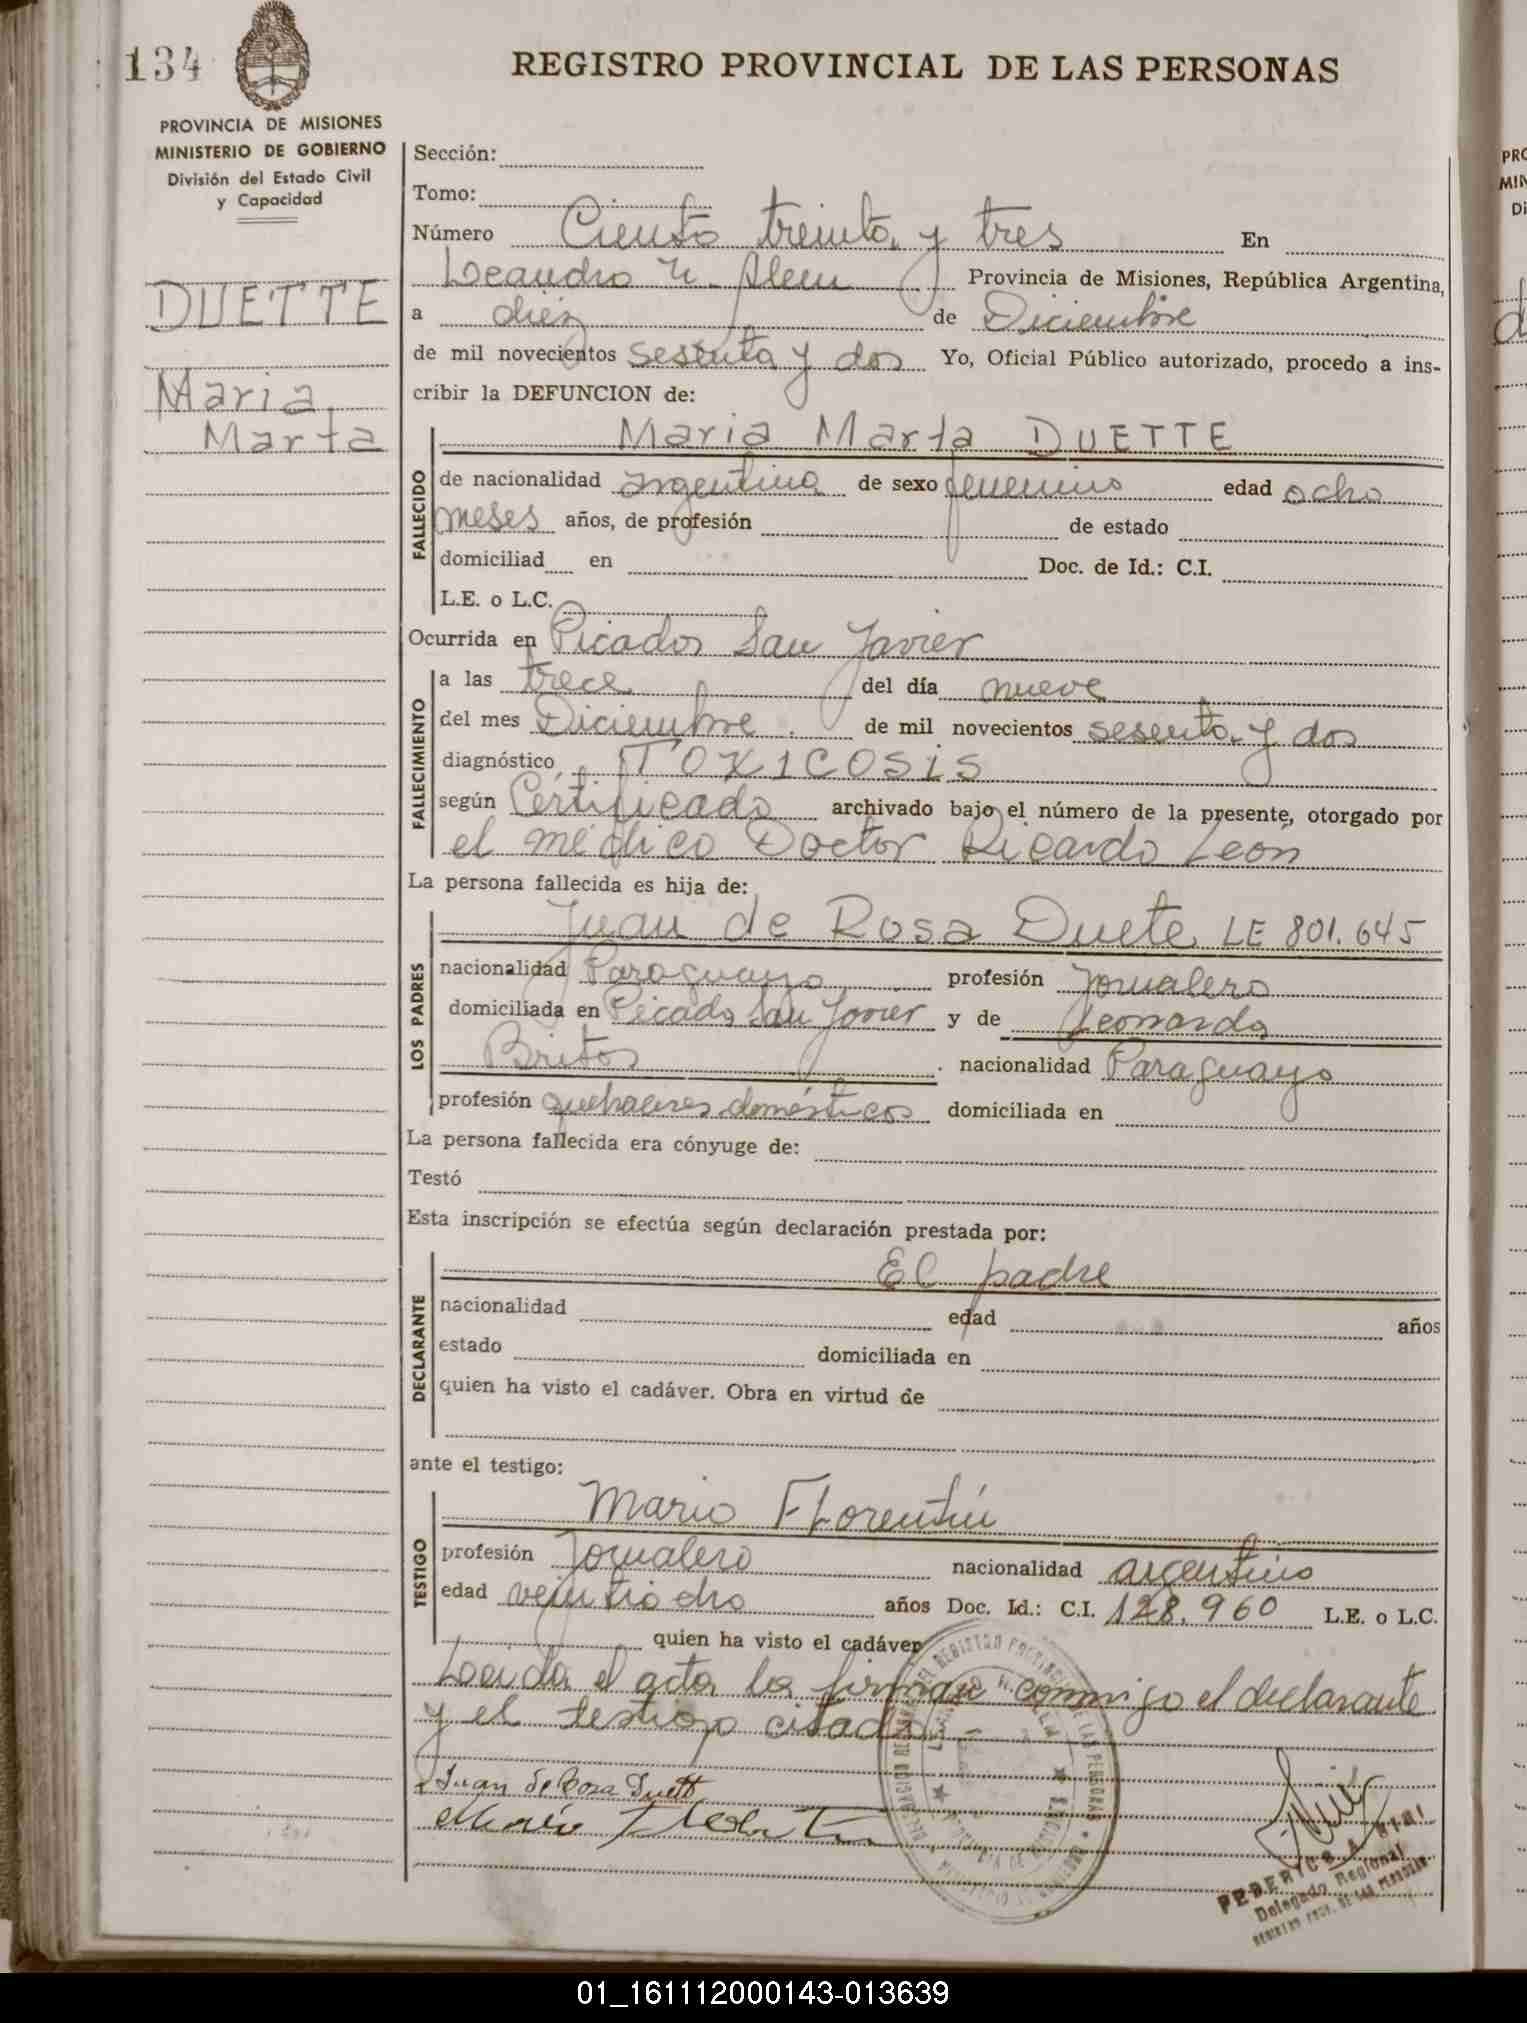 134
REGISTRO PROVINCIAL DE LAS PERSONAS
PROVINCIA DE MISIONES
MINISTERIO DE GOBIERNO
División del Estado Civil
y Capacidad
DUETTE
Maria
Marta
Sección:
Tomo:
Número Ciento treinta y tres En
Leandro N. Alem Provincia de Misiones, República Argentina,
a diez de Diciembre
de mil novecientos sesenta y dos Yo, Oficial Público autorizado, procedo a ins-
cribir la DEFUNCION de:
FALLECIDO
Maria Marta DUETTE
de nacionalidad argentina de sexo femenino edad ocho
meses años, de profesión de estado
domiciliad en Doc. de Id.: C.I.
L.E. o L.C.
Ocurrida en Picada San Javier
FALLECIMIENTO
a las trece del día nueve
del mes Diciembre de mil novecientos sesenta y dos
diagnóstico TOXICOSIS
según Certificado archivado bajo el número de la presente, otorgado por
el médico Doctor Ricardo León
La persona fallecida es hija de:
LOS PADRES
Juan de Rosa Duete LE 801.645
nacionalidad Paraguayo profesión Jornalero
domiciliada en Picada San Javier y de Leonarda
Britos nacionalidad Paraguaya
profesión quehaceres domésticos domiciliada en
La persona fallecida era cónyuge de:
Testó
Esta inscripción se efectúa según declaración prestada por:
DECLARANTE
El padre
nacionalidad edad años
estado domiciliada en
quien ha visto el cadáver. Obra en virtud de
ante el testigo:
TESTIGO
Mario Florentín
profesión Jornalero nacionalidad argentino
edad veintiocho años Doc. Id.: C.I. 128.960 L.E. o L.C.
quien ha visto el cadáver
Leida el acta la firman conmigo el declarante
y el testigo citado
Juan de Rosa Duett
Mario
FEDERICO A.
Delegado Regional
REGISTRO PROV. DE LAS PERSONAS
PRO
MIN
Di
01_161112000143-013639